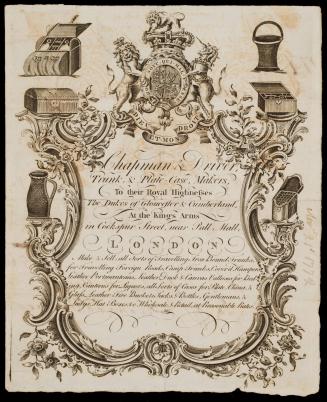 HONI SOIT QUI MAL Y PENSE
DIEU ET MON DROIT
Chapman & Driver
Trunk & Plate-Case Makers,
To their Royal Highnesses
The Dukes of Gloucester & Cumberland,
At the Kings Arms
in Cockspur Street, near Pall Mall,
LONDON
Make & Sell all Sorts of Travelling Iron Bound Trunks,
for Travelling Foreign Roads, Camp Trunks, Cover'd Hampers,
Leather Portmanteaus, Leather, &
Canteens for sorts of Cases for Plate, China, &
Glass, Leather Fire Buckets, Jacks & Bottles, Gentlemens &
Hat Boxes &c. Wholesale & Retail, at Reasonable Rates.